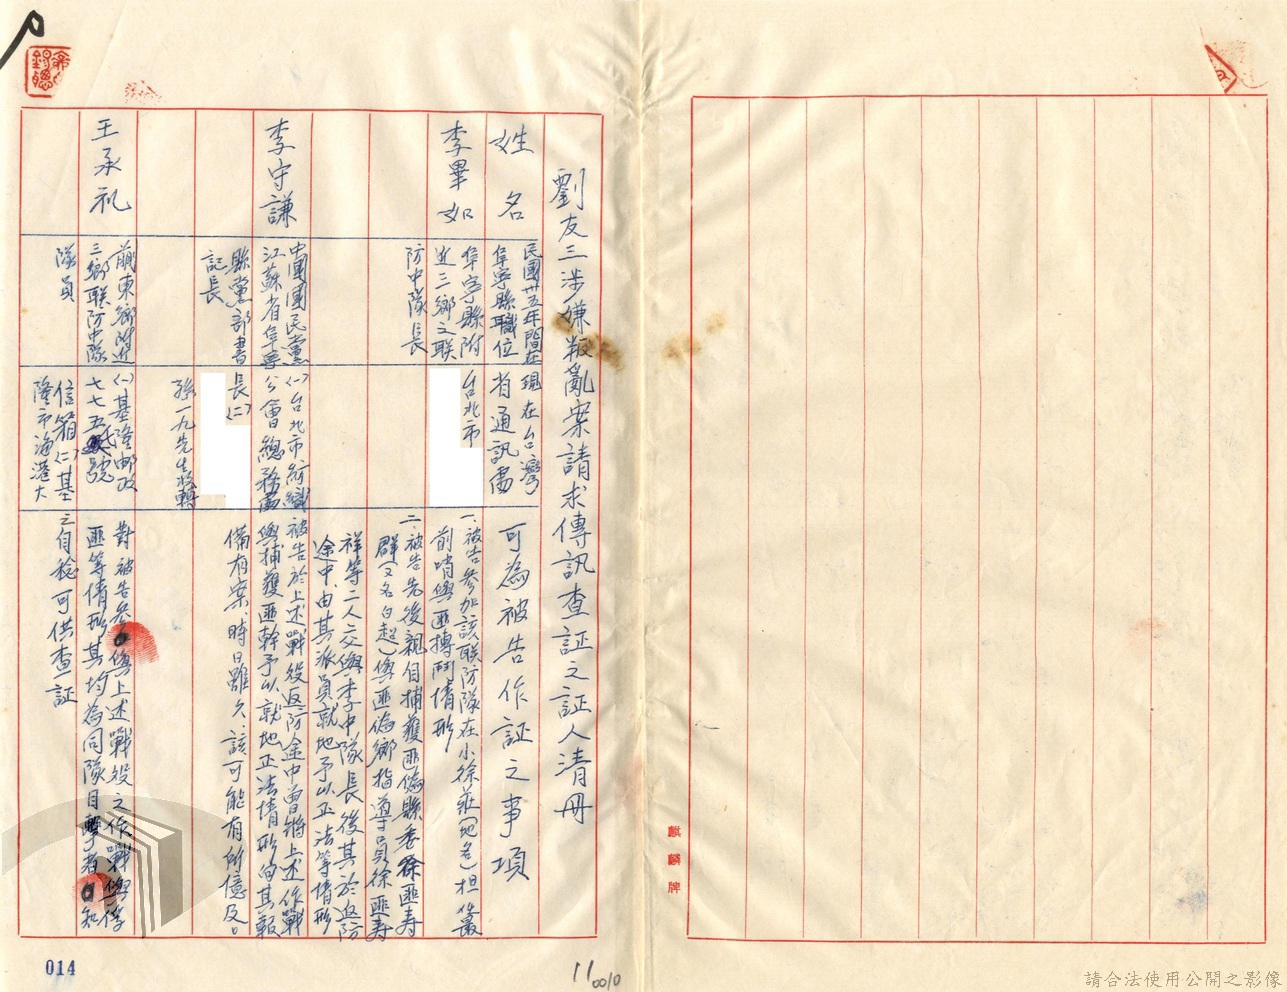 劉友三涉嫌叛亂案請求傳訊查証之証人清冊
姓名
民國卅五年間在
阜寧縣職位
現在台灣
省通訊處
可為被告作証之事項
李畢如
阜寧縣附
近三鄉之联
防中隊長
台北市
一、被告參加該联防隊在小徐莊(地名)担叢
前哨與匪搏鬥情形
二、被告先後親自捕獲匪偽縣委徐匪寿
群(又名白超)與匪偽鄉指導員徐匪寿
祥等二人交與李中隊長後其於返防
途中由其派員就地予以正法等情形
李守謙
中國國民黨
江蘇省阜寧
縣黨部書
記長
(一)台北市紡織
公會總務處
長(二)
孫一九先生收轉
被告於上述戰役返防途中曾將上述作戰
與捕獲匪幹予以就地正法情形向其報
備有案時日雖久該可能有所憶及。
王承礼
前東鄉附近
三鄉联防中隊
隊員
(一)基隆郵政
七七五號
信箱(二)基
隆市海港大
對被告參與上述戰役之作戰與俘
匪等情形其均為同隊目擊者知
之自稔可供查証
麒麟牌
014
11
0010
請合法使用公開之影像